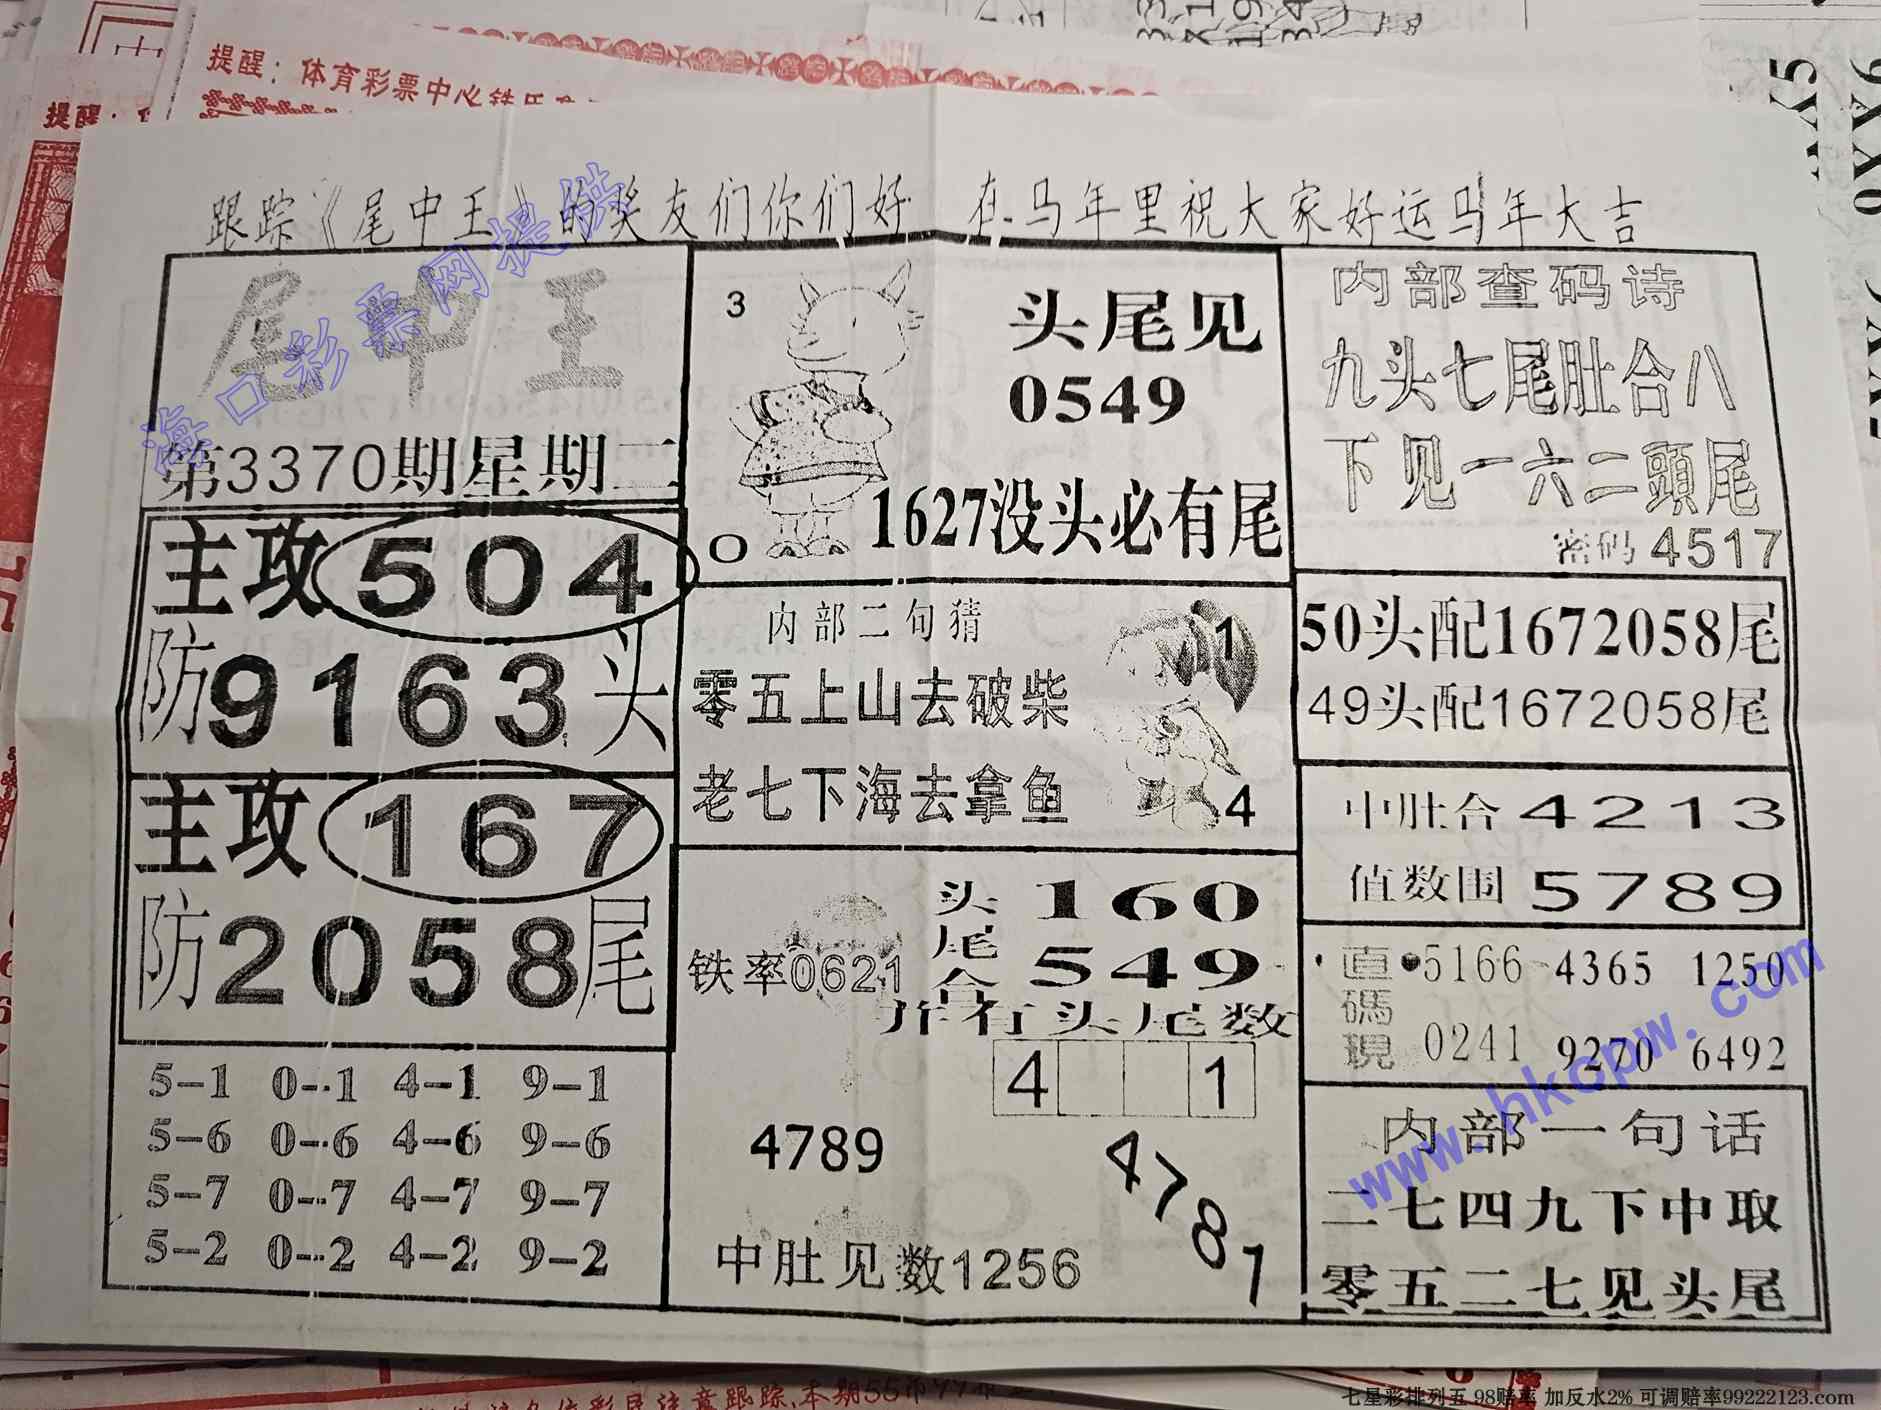 提醒：体育彩票中心铁
提醒：
跟踪《尾中王》的奖友们你们好 在马年里祝大家好运马年大吉
尾中王
第3370期星期二
主攻504
防9163头
主攻167
防2058尾
5-1 0-1 4-1 9-1
5-6 0-6 4-6 9-6
5-7 0-7 4-7 9-7
5-2 0-2 4-2 9-2
3
头尾见
0549
0
1627没头必有尾
内部二句猜
零五上山去破柴
老七下海去拿鱼
1
4
铁率0621
头 160
尾 549
合
并有头尾数
4 1
4789
4787
中肚见数1256
内部查码诗
九头七尾肚合八
下见一六二頭尾
密码4517
50头配1672058尾
49头配1672058尾
中肚合4213
值数围5789
直碼現
5166 4365 1250
0241 9270 6492
内部一句话
二七四九下中取
零五二七见头尾
海口彩票网提供
www.hkcpw.com
七星彩排列五 98赔率 加反水2% 可调赔率99222123.com